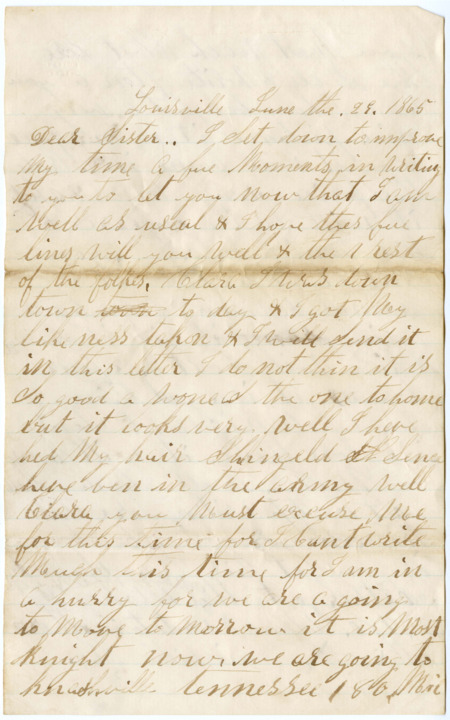 Louisville June the . 29 . 1865
Dear Sister .. I Set down to improve
My time a fue Moments in Writing
to you to let you now that I am
Well as usual & I hope thes fue
lines will you well & the rest
of the folks, Clara I was down
town to day & I got My
like ness takon & I will send it
in this letter I do not thin it is
So good a wone as the one to home
but it looks very well I have
hed My hair Shingeld Since
have ben in the army well
Clara you Must excuse Me
for this time for I Cant write
Much this time for I am in
a hurry for we are a going
to Move to Morrow it is Most
Knight now we are going to
knashville tennessee 18